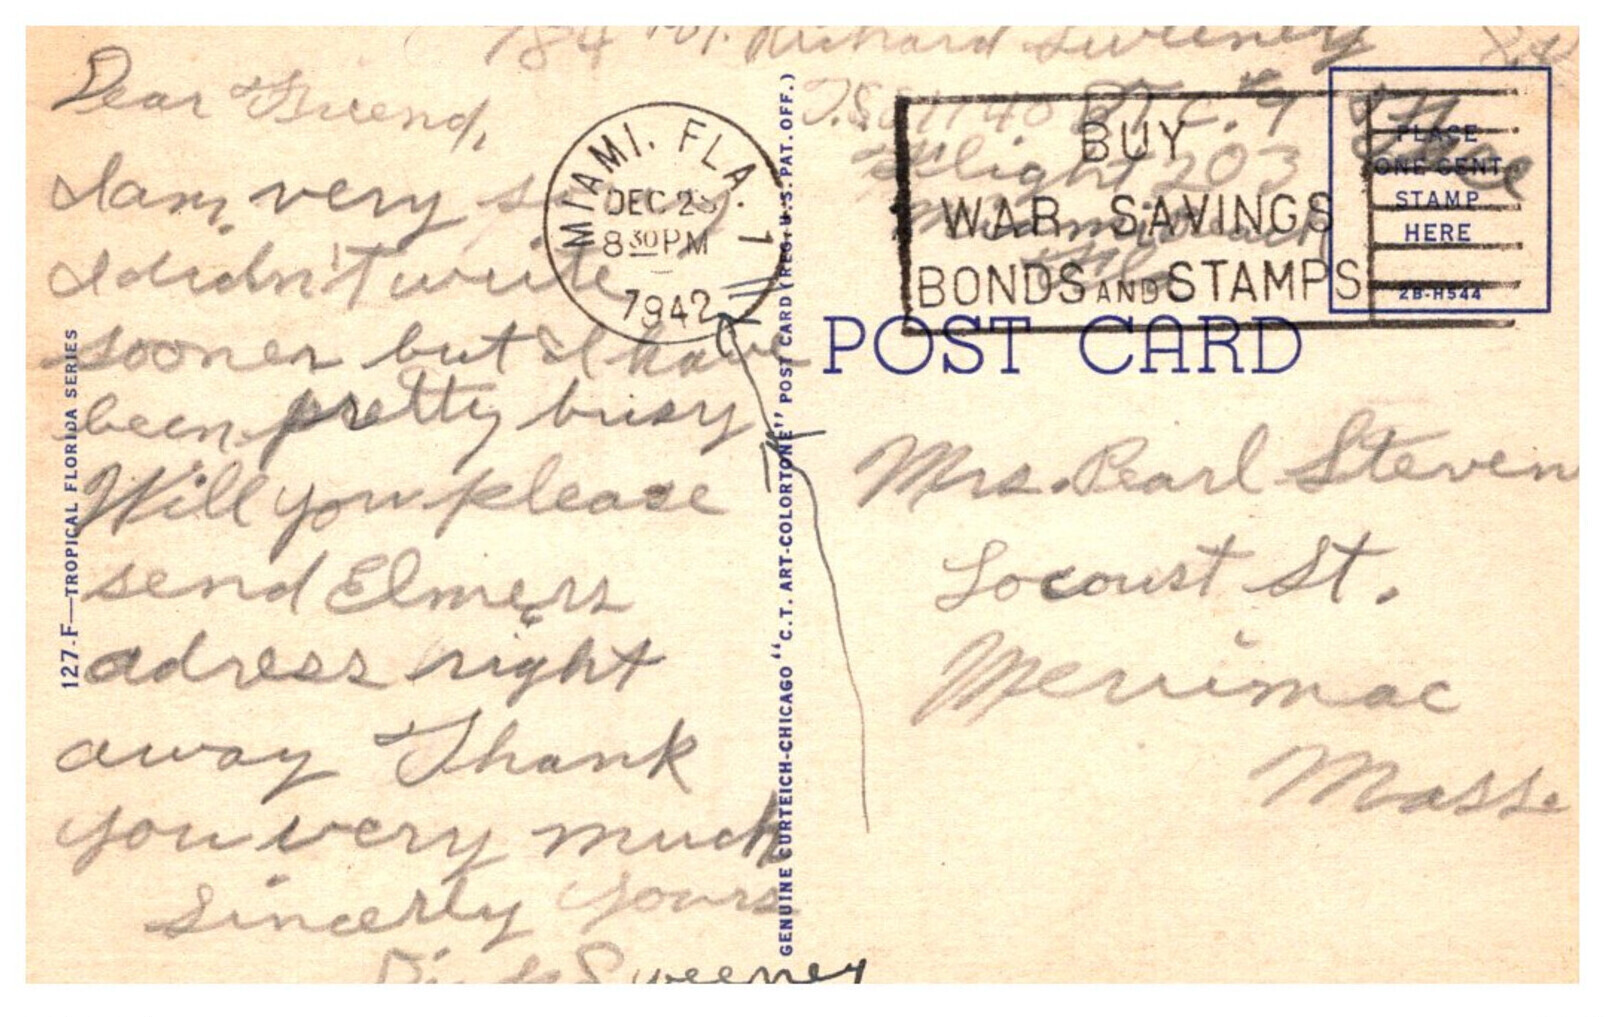 Pvt. Richard Sweeney
Dear Friend,
I am very
I didn't write
sooner but I have
been pretty busy
Will you please
send Elmers
adress right
away Thank
you very much
Sincerly yours
Dick Sweeney
127-F—TROPICAL FLORIDA SERIES
MIAMI, FLA. 1
DEC 2
8 30 PM
1942
GENUINE CURTEICH-CHICAGO "C.T. ART-COLORTONE" POST CARD (REG. U.S. PAT. OFF.)
Flight 203
Miami Beach
Fla
BUY
WAR SAVINGS
BONDS AND STAMPS
PLACE
ONE CENT
STAMP
HERE
2B-H544
POST CARD
Mrs. Pearl Steven
Locoust St.
Merrimac
Mass.